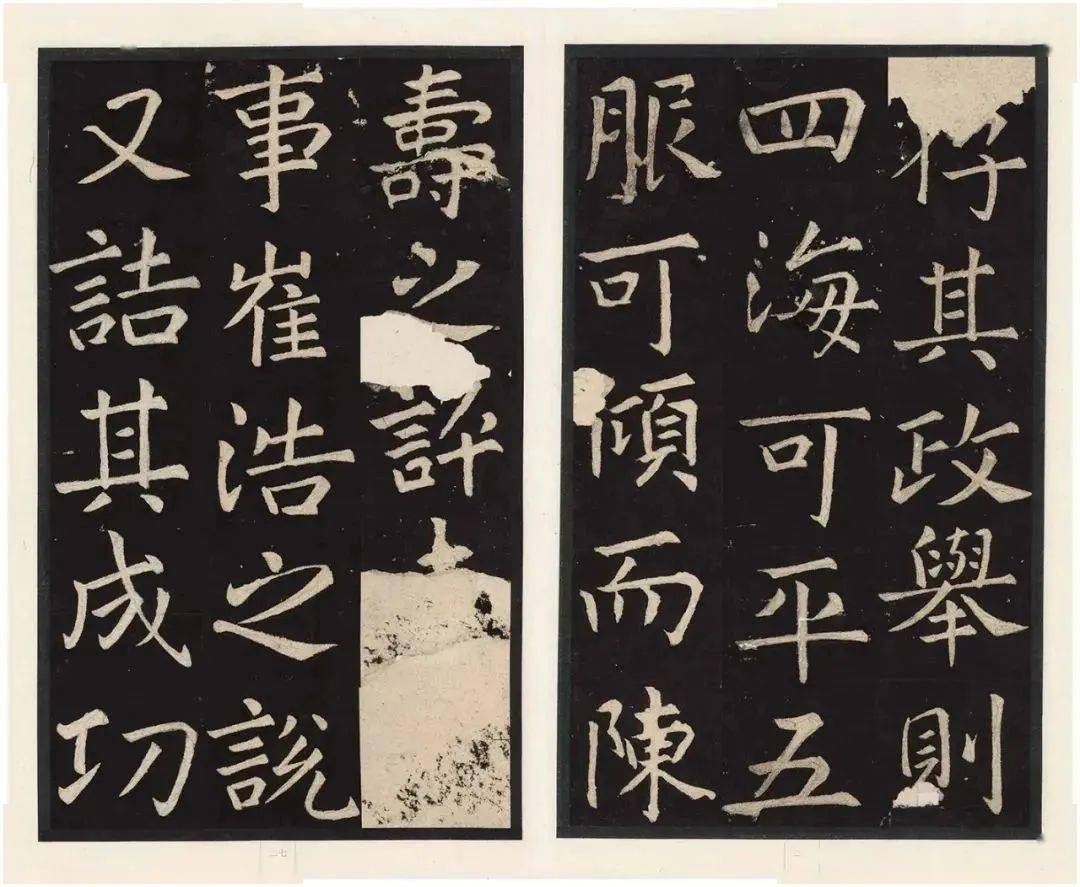 存其政舉則
四海可平五
服可傾而陳
壽之評
事崔浩之說
又詰其成功